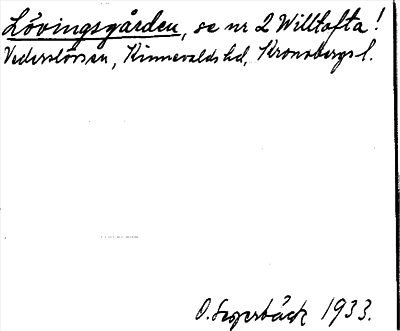 Lövingsgården, se nr 2 Willtofta!
Vederslövs sn, Kinnevalds hd, Kronobergs l.
O. Segerbäck 1933.